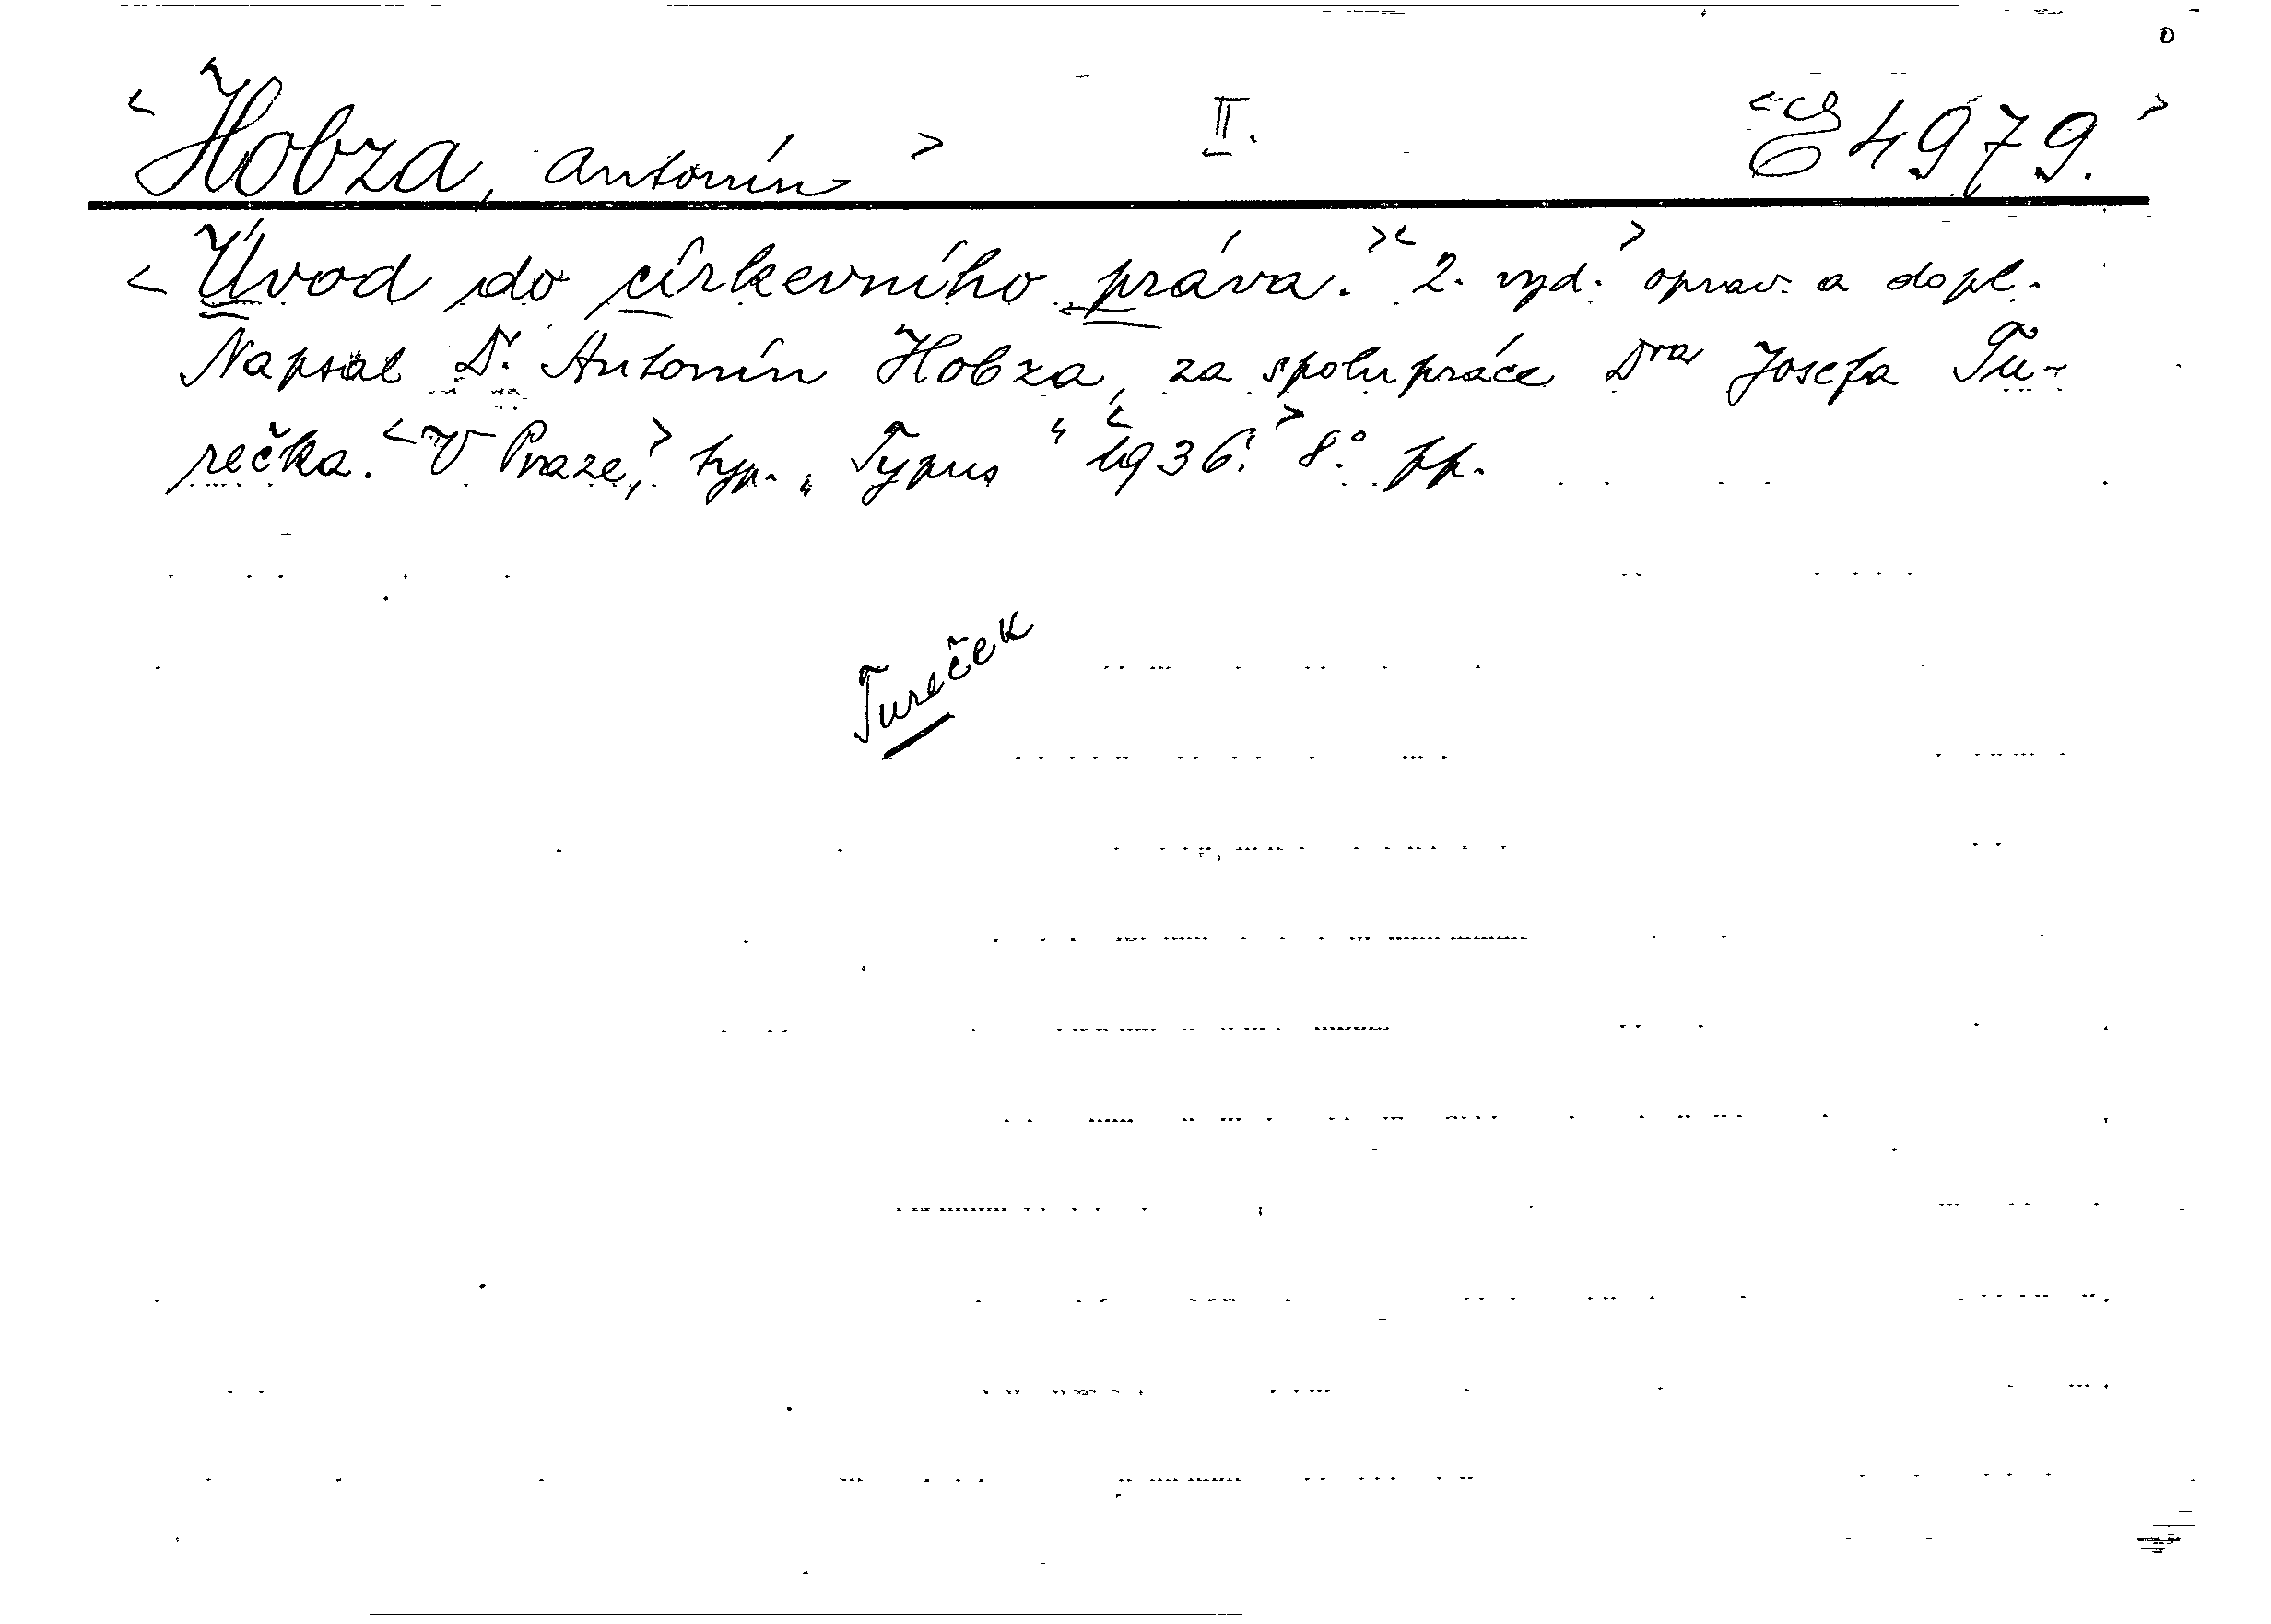 <Hobza, Antonín> II. <E 4979.>
<Úvod do církevního práva.><2. vyd.> oprav. a dopl.
Napsal Dr. Antonín Hobza, za spolupráce Dra Josefa Tu-
rečka. <V Praze,> typ. „Typus“ <1936.> 8.° pp.
Tureček